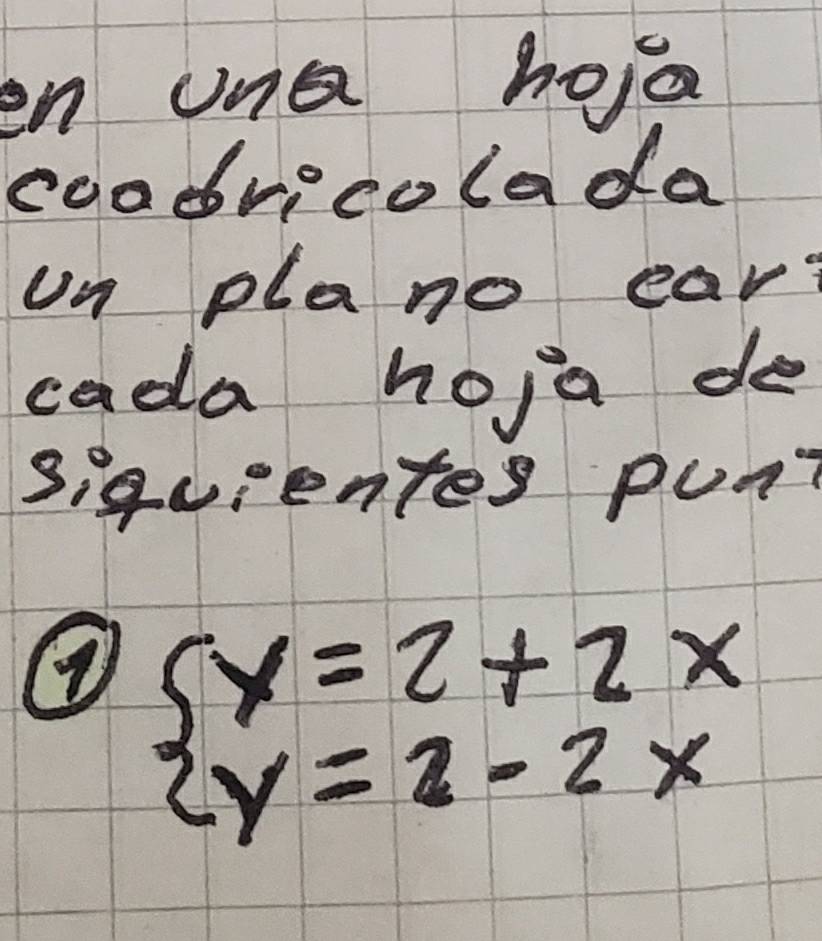 en una hoja
coadricolada
un plano car
cada hoja de
siguientes pun
① { y = 2 + 2x
{ y = 2 - 2x